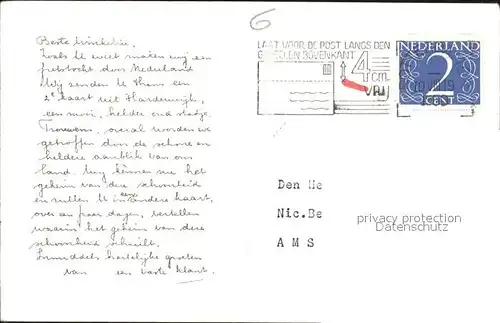 6
Beste Winkelier,
Zoals U weet maken wij een
fietstocht door Nederland
Wij zenden U thans een
2e kaart uit Harderwijk,
een mooi, helder oud stadje.
Trouwens, overal worden we
getroffen door de schone en
heldere aanblik van ons
land. Wij kennen nu het
geheim van deze schoonheid
en zullen U in een andere kaart,
over een paar dagen, vertellen
waarin het geheim van deze
schoonheid schuilt.
Inmiddels hartelijke groeten
van een vaste klant.
LAAT VOOR DE POST LANGS DEN
BOVENKANT
4 cm.
VRIJ
NEDERLAND
2
CENT
Den He
Nic.Be
AMS
privacy protection
Datenschutz